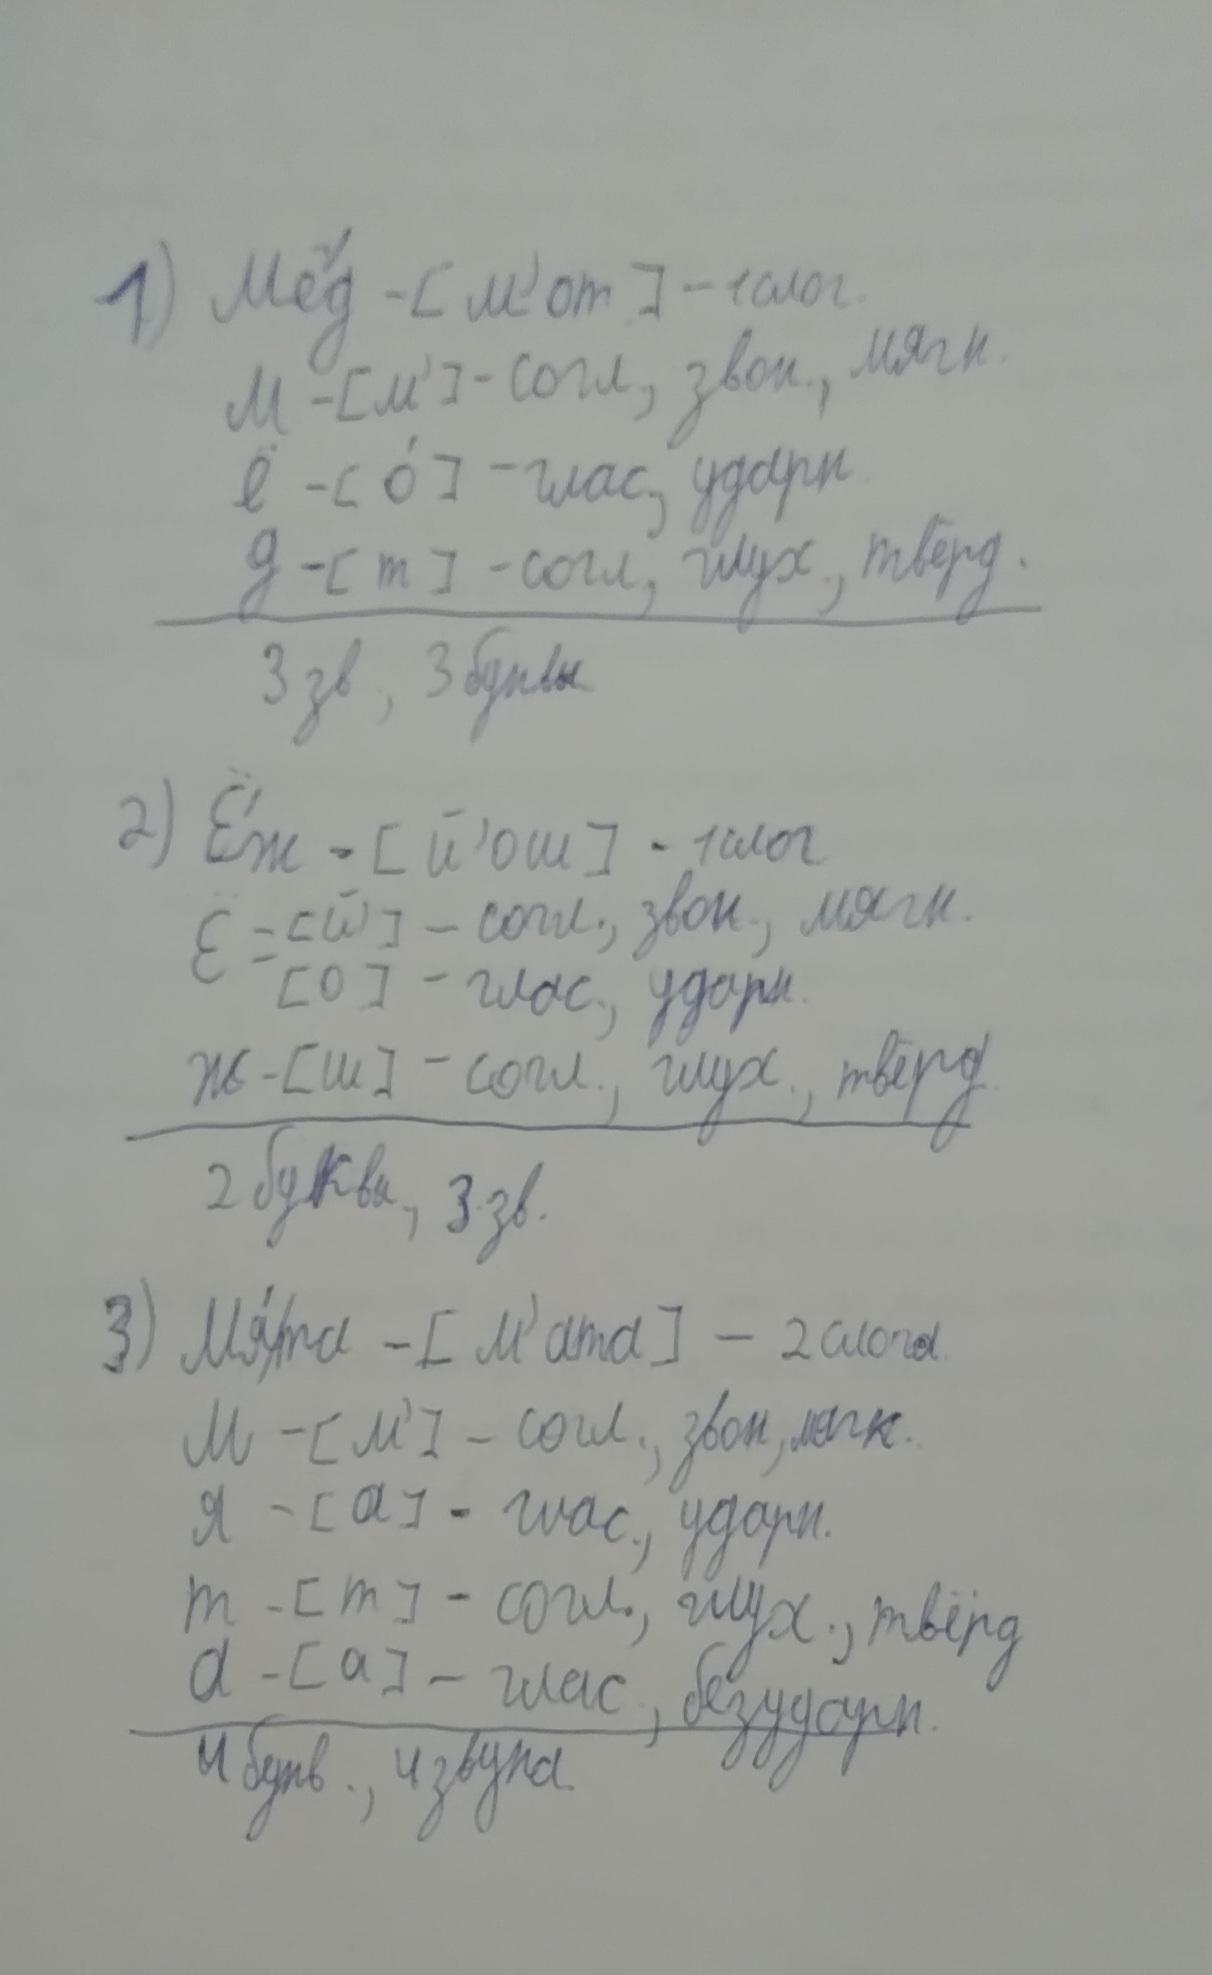 1) Мёд - [м'от] - 1 слог.
м - [м'] - согл., звон., мягк.
ё - [о́] - глас., ударн.
д - [т] - согл., глух., твёрд.
3 зв, 3 буквы
2) Ёж - [й'ош] - 1 слог
Ё = [й'] - согл., звон., мягк.
[о] - глас., ударн.
ж - [ш] - согл., глух., твёрд
2 буквы, 3 зв.
3) Мя́/та - [м'ата] - 2 слога
м - [м'] - согл., звон, мягк.
я - [а] - глас., ударн.
т - [т] - согл., глух., твёрд
а - [а] - глас., безударн.
4 букв., 4 звука